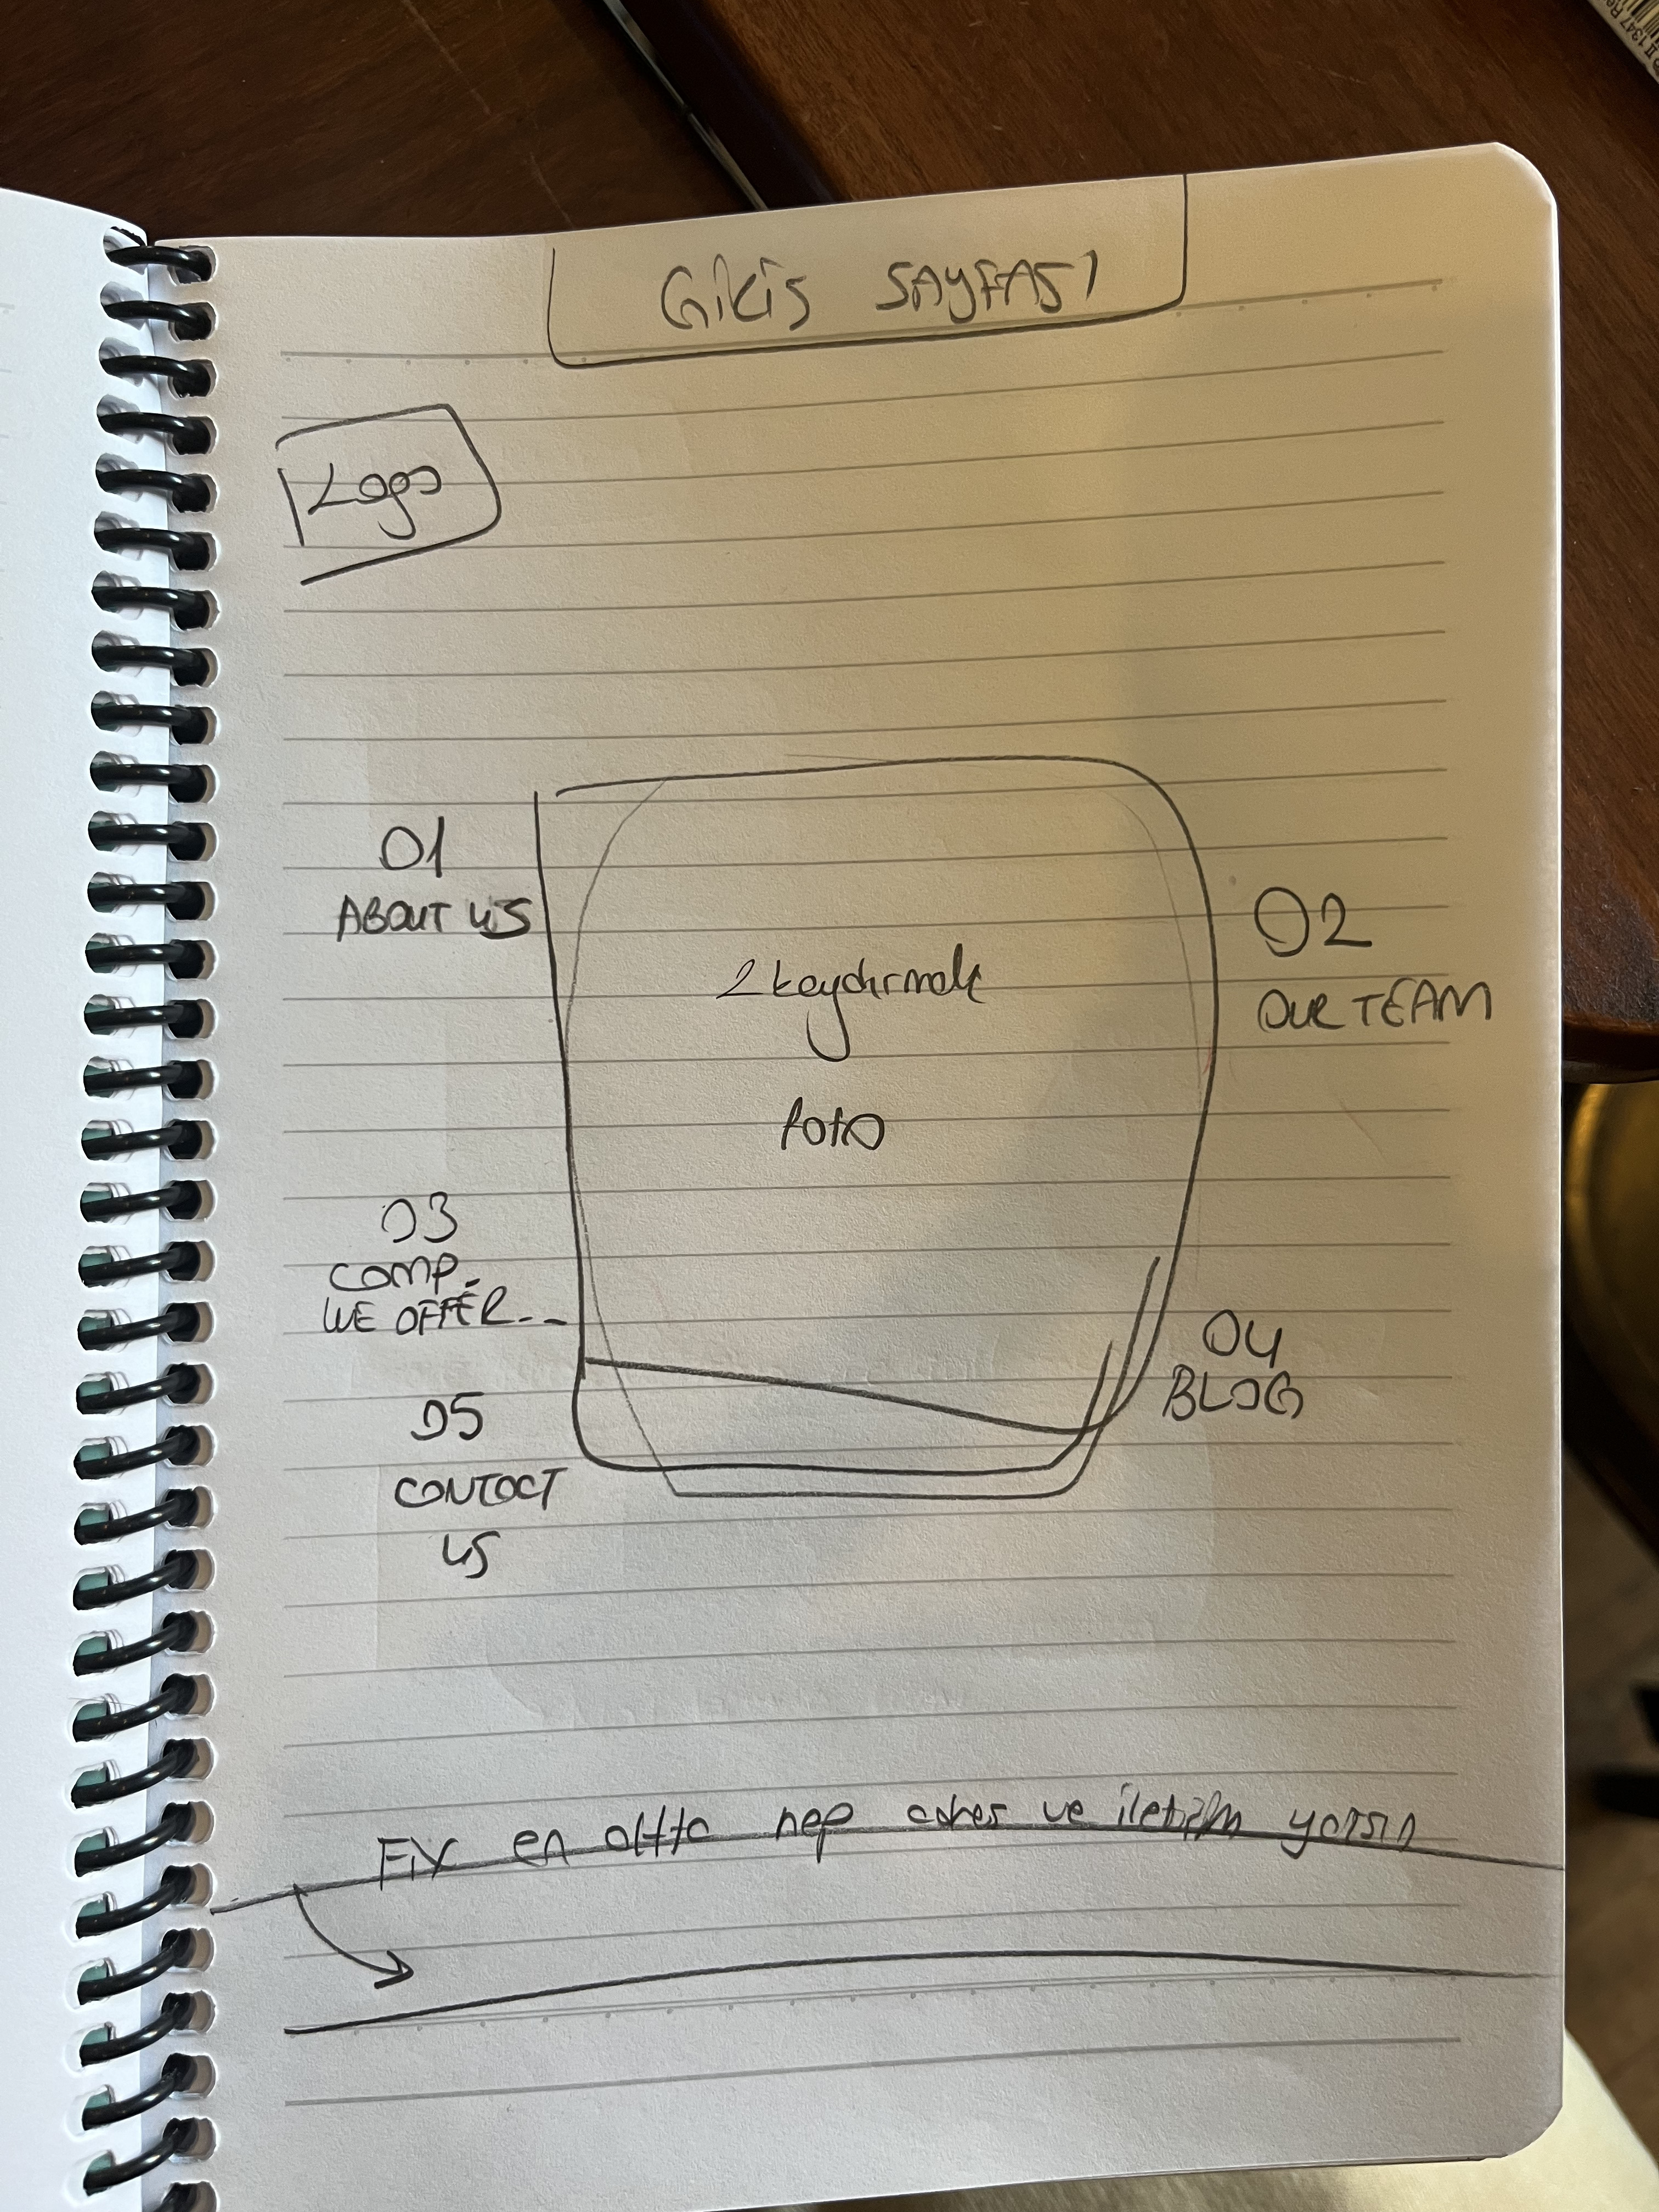 GİRİŞ SAYFASI
Logo
01
ABOUT US
02
OUR TEAM
2 kaydırmalı
foto
03
COMP.
WE OFFER--
04
BLOG
05
CONTACT
US
FIX en altta hep adres ve iletişim yazsın